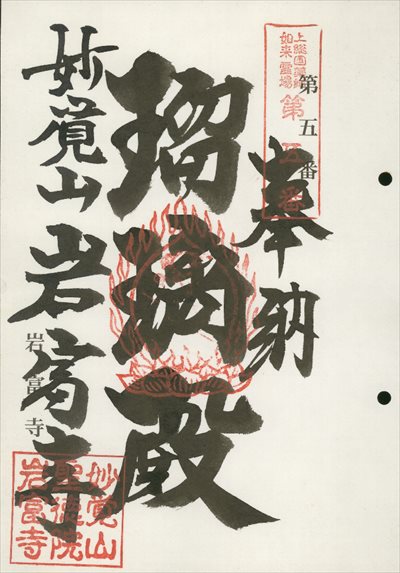 上総国薬師
如来霊場
第五番
第五番
奉納
瑠璃殿
妙覚山岩富寺
岩富寺
妙覚山
聖徳院
岩富寺